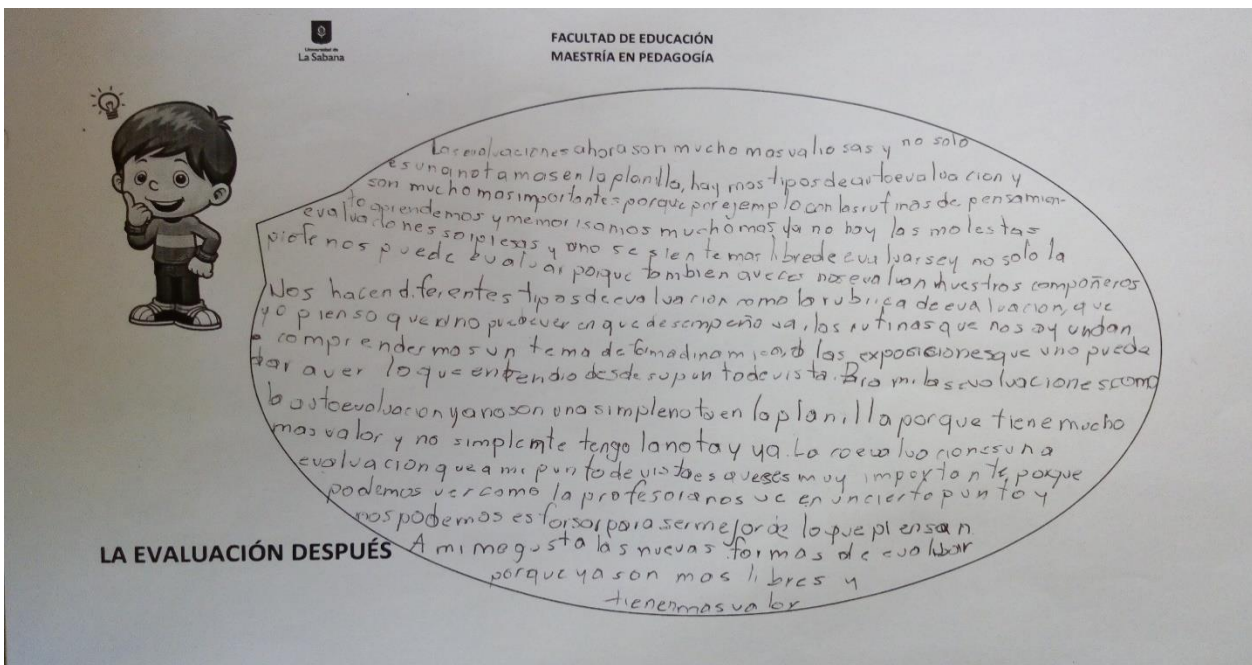 Universidad de
La Sabana
FACULTAD DE EDUCACIÓN
MAESTRÍA EN PEDAGOGÍA
Las evaluaciones ahora son mucho mas valiosas y no solo
es una nota mas en la planilla, hay mas tipos de autoevaluacion y
son mucho mas importantes porque por ejemplo con las rutinas de pensamien-
to aprendemos y memorisamos mucho mas ya no hay las molestas
evaluaciones sorpresas y uno se siente mas libre de evaluarse y no solo la
profe nos puede evaluar porque tambien aveces nos evaluan nuestros compañeros
Nos hacen diferentes tipos de evaluacion como la rubrica de evaluacion, que
yo pienso que uno puede ver en que desempeño va, las rutinas que nos ayundan
a comprender mas un tema de forma dinamica, o las exposiciones que uno pueda
dar a ver lo que entendio desde su punto de vista. Para mi las evaluaciones como
la autoevaluacion ya no son una simple nota en la planilla porque tiene mucho
mas valor y no simplemte tengo la nota y ya. La coevaluacion es una
evaluacion que a mi punto de vista es aveses muy importante, porque
podemos ver como la profesora nos ve en un cierto punto y
nos podemos esforsar para ser mejor de lo que piensan
A mi me gusta las nuevas formas de evaluar
porque ya son mas libres y
tienen mas valor
LA EVALUACIÓN DESPUÉS